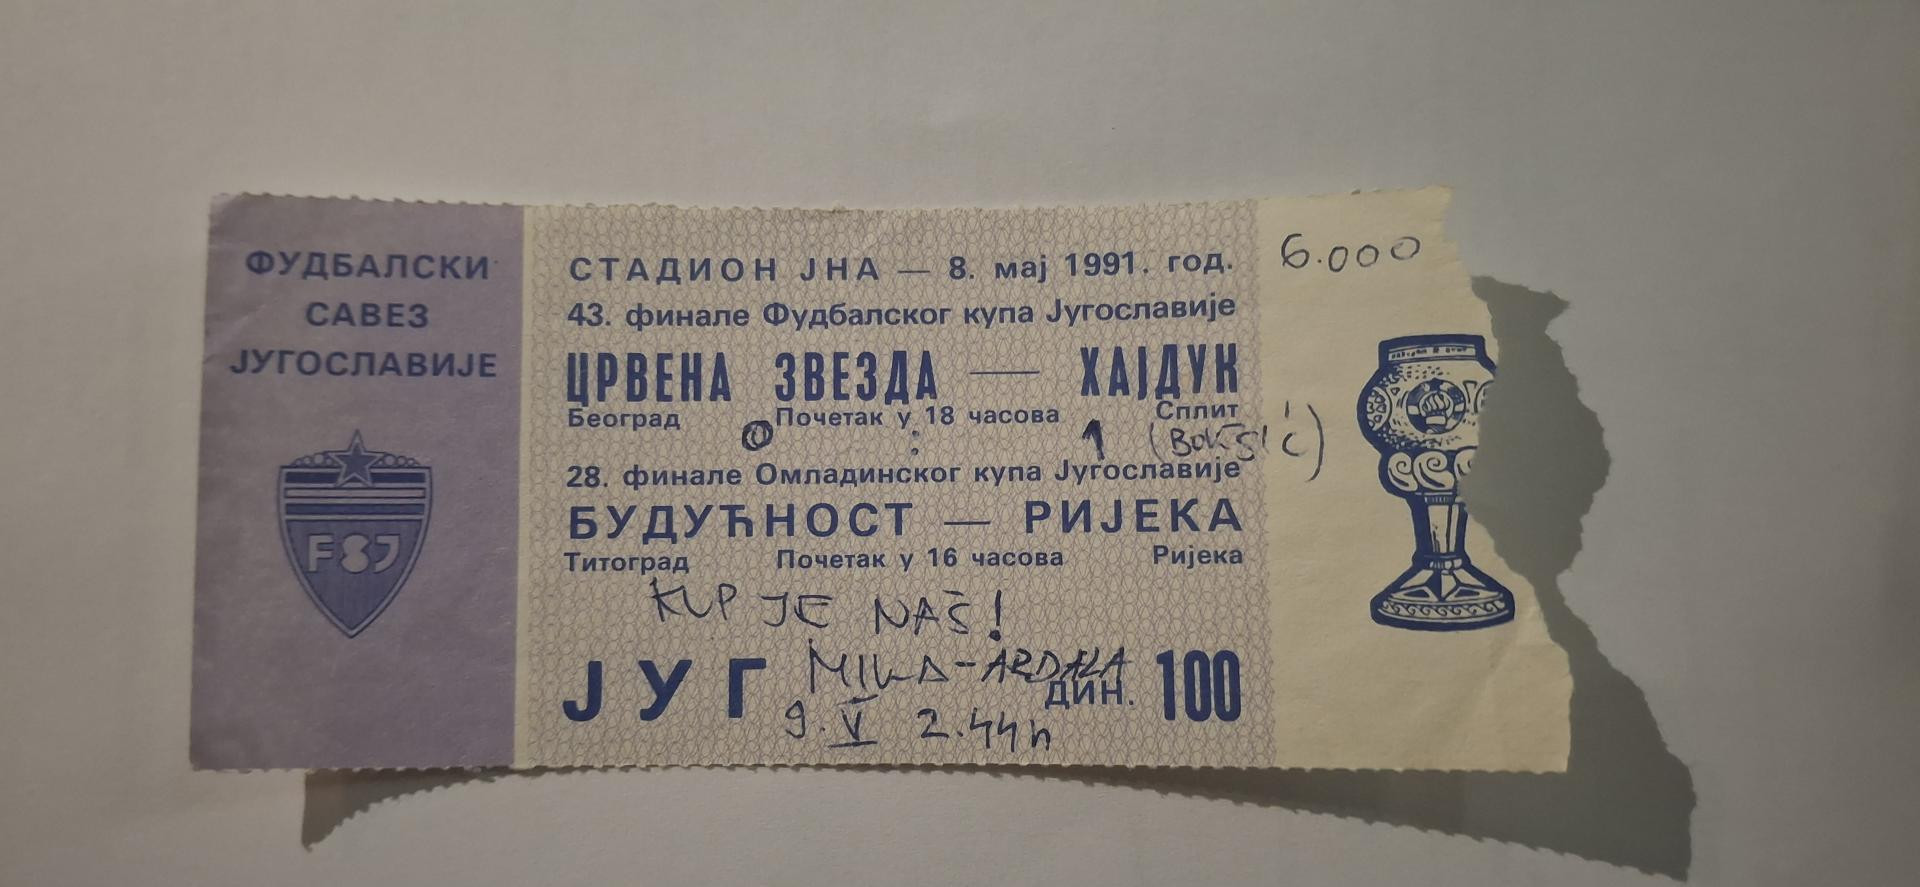 ФУДБАЛСКИ
САВЕЗ
ЈУГОСЛАВИЈЕ
FSJ
СТАДИОН ЈНА — 8. мај 1991. год.
43. финале Фудбалског купа Југославије
ЦРВЕНА ЗВЕЗДА — ХАЈДУК
Београд Почетак у 18 часова Сплит
0 : 1 (BOKŠIĆ)
28. финале Омладинског купа Југославије
БУДУЋНОСТ — РИЈЕКА
Титоград Почетак у 16 часова Ријека
KUP JE NAŠ!
ЈУГ ДИН. 100
9. V 2.44h
6.000